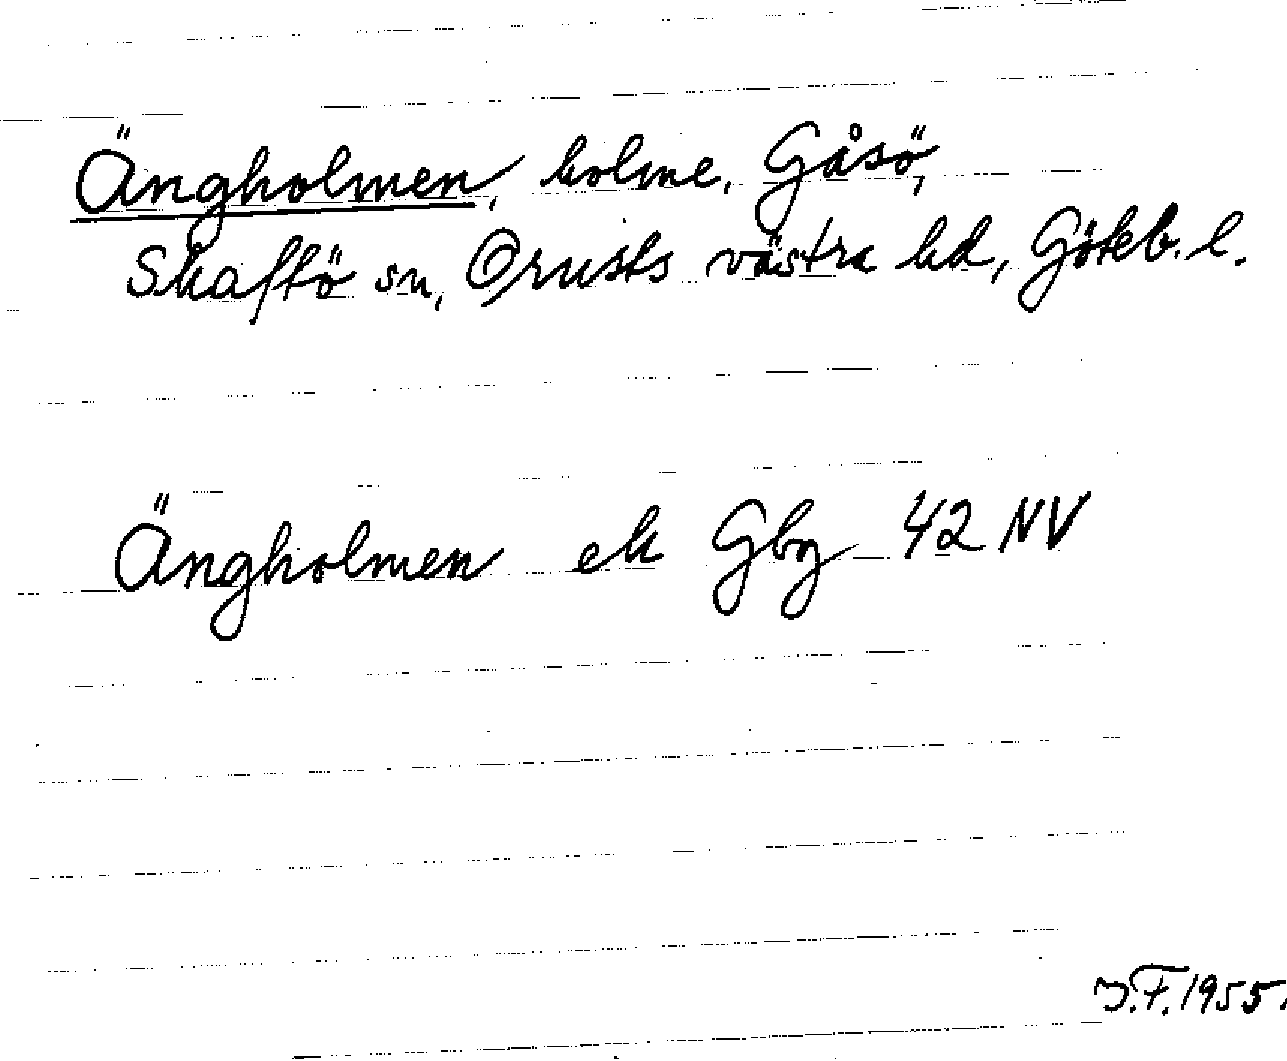 Ängholmen, holme, Gåsö,
Skaftö sn, Orusts västra hd, Göteb. l.
Ängholmen ek Gbg 42 NV
J.F. 1955.